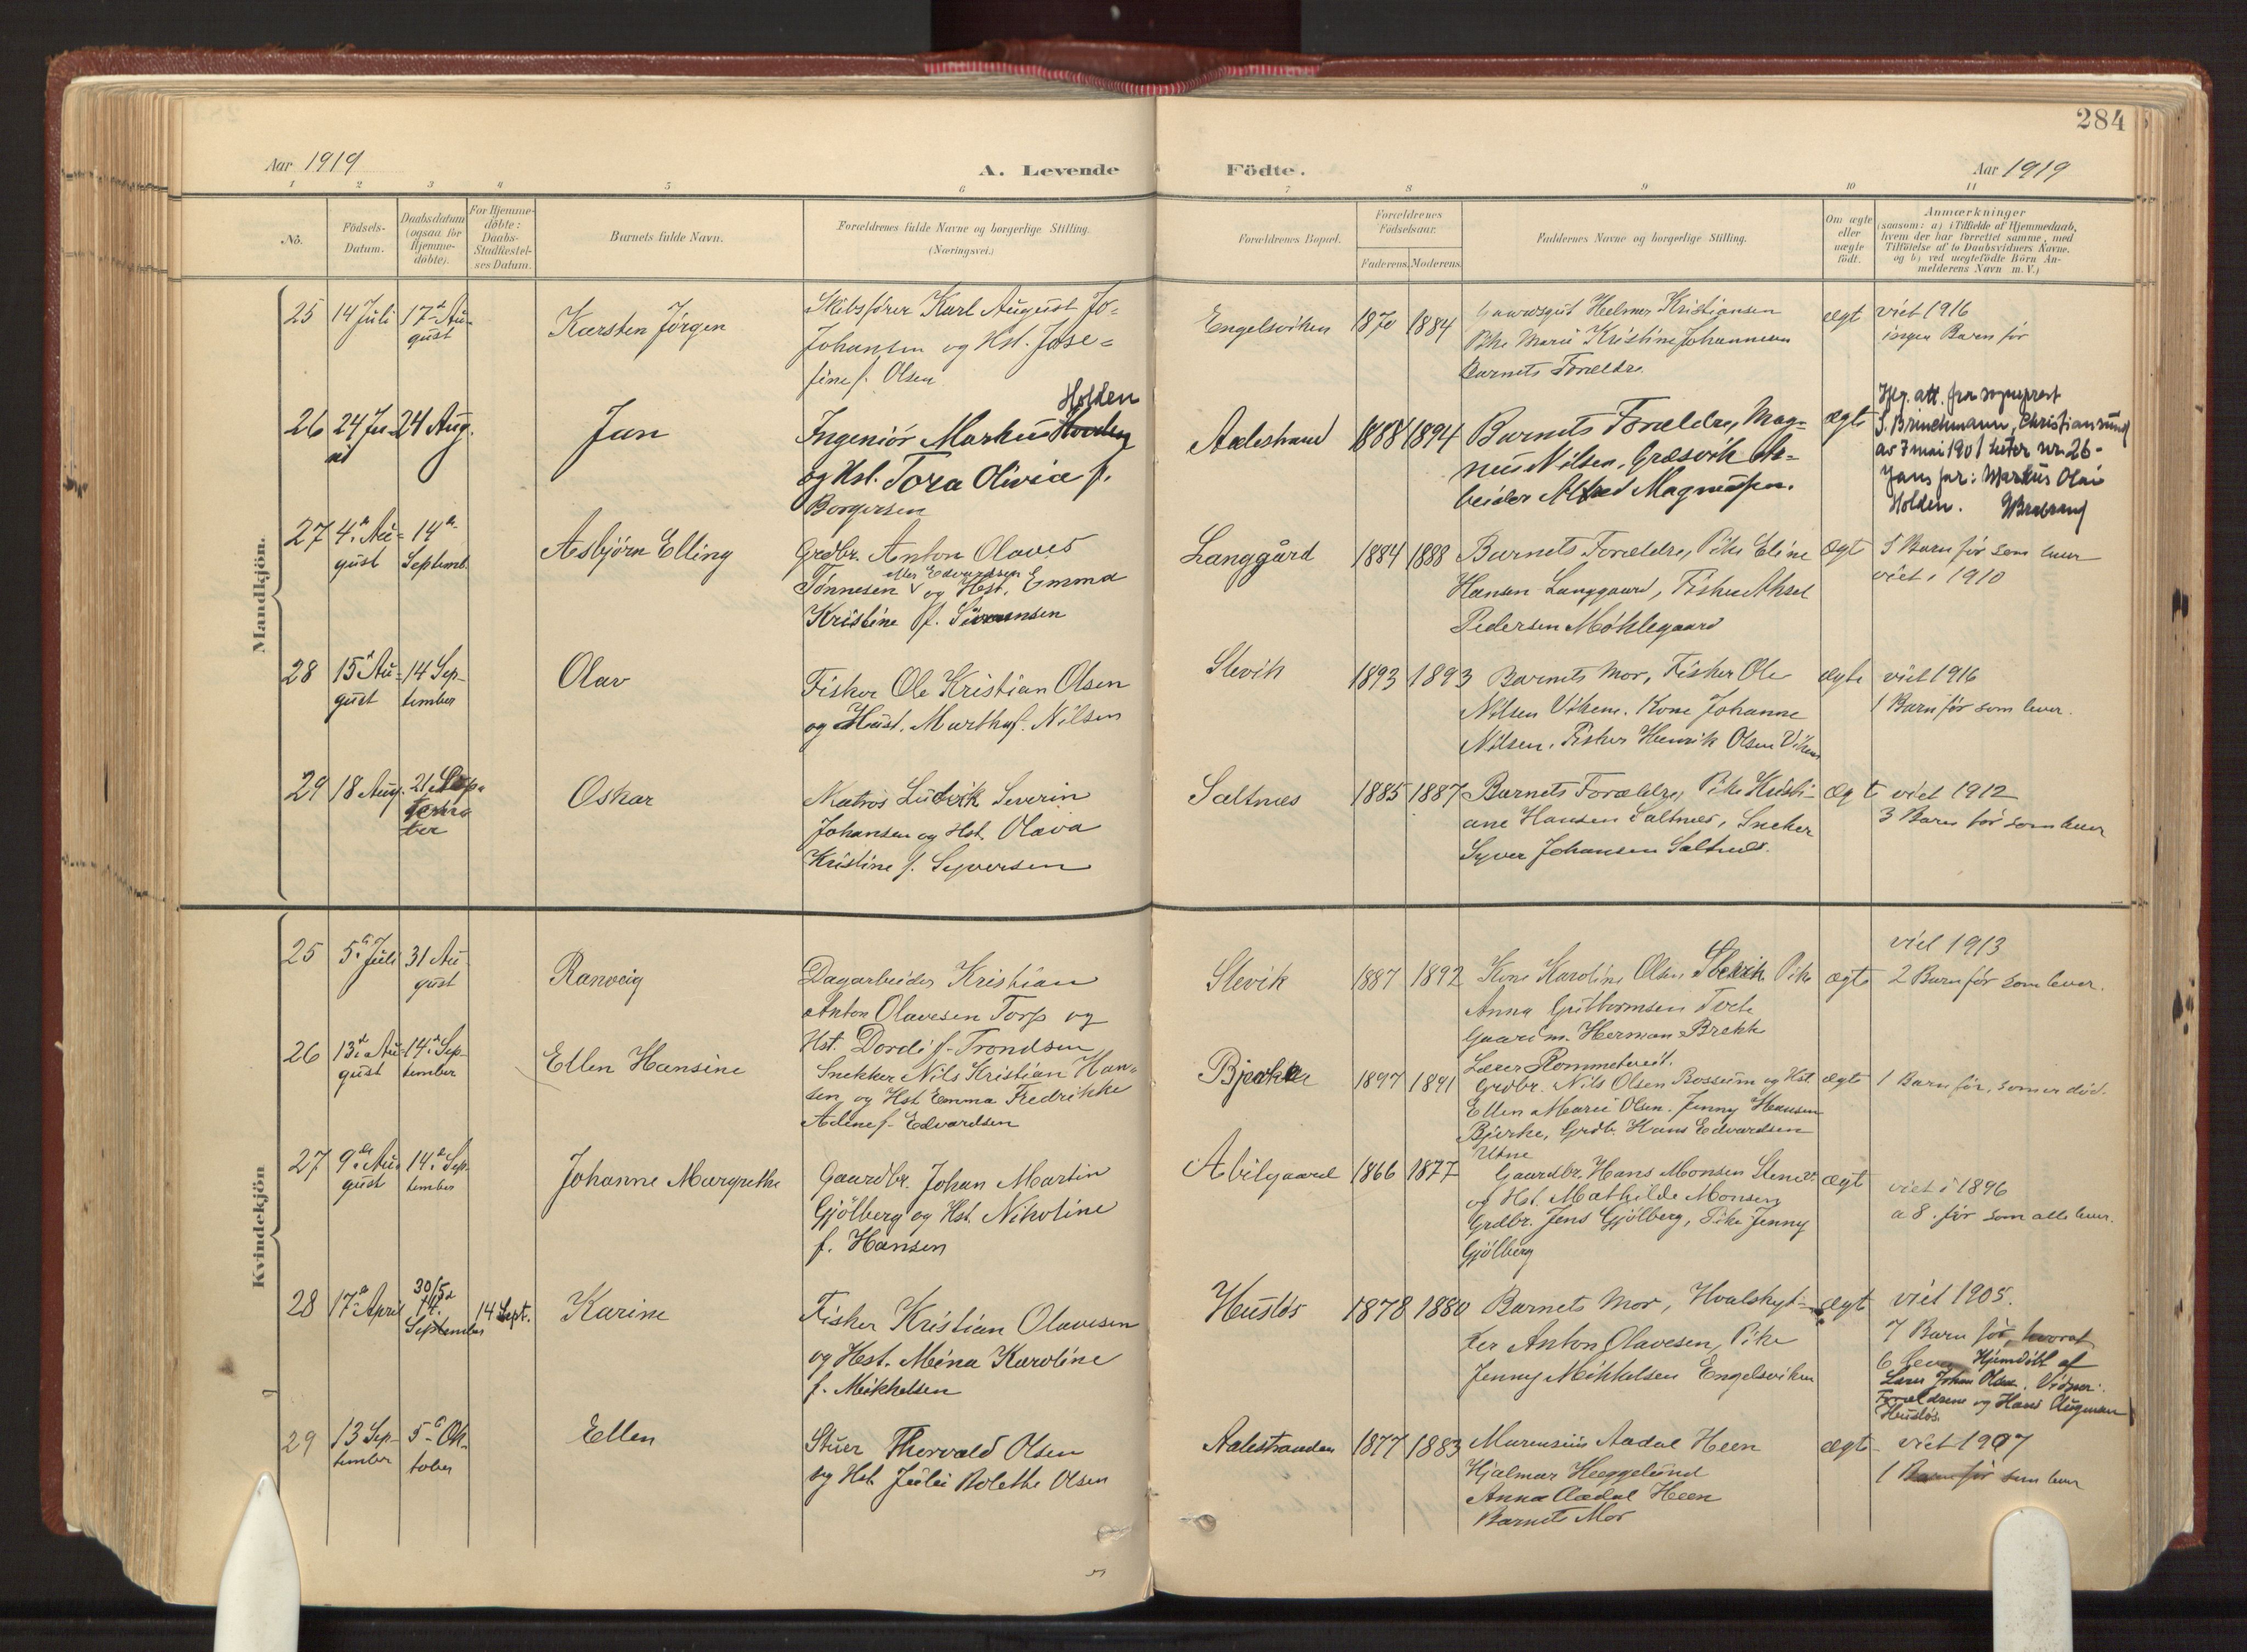 284
Aar 1919
A. Levende
Födte.
Aar 1919
1 2 3 4 5 6 7 8 9 10 11
No.
Födsels-
Datum.
Daabsdatum
(ogsaa for
Hjemme-
döbte).
For Hjemme-
döbte:
Daabs-
Stadfæstel-
ses Datum.
Barnets fulde Navn.
Forældrenes fulde Navne og borgerlige Stilling.
(Næringsvei.)
Forældrenes Bopæl.
Forældrenes
Födselsaar.
Faderens. Moderens.
Faddernes Navne og borgerlige Stilling.
Om ægte
eller
uægte
födt.
Anmærkninger
(saasom: a) i Tilfælde af Hjemmedaab,
hvem der har forrettet samme, med
Tilföielse af to Daabsvidners Navne.
og b) ved uægtefödte Börn An-
melderens Navn m. V.)
Mandkjön.
25
14 Juli
17de Au-
gust
Karsten Jörgen
Skibsförer Karl August Jo-
Johansen og Hst. Jose-
fine f. Olsen
Engelsviken
1870
1884
Gaardsgut Helmer Kristiansen
Pike Marie Kristine Johannesen
Barnets Forældre
ægt
viet 1916
ingen Barn før
26
24 Ju-
ni
24 Aug.
Jan
Holden
Ingeniör Markus
og Hst. Tora Olivia f.
Borgersen
Aalestrand
1888
1894
Barnets Forældre, Mag-
nus Nilsen, Græsvik Ar-
beider Alfred Magnussen.
ægte
Iflg. att. fra sogneprest
S. Brinchmann, Christiansund
av 7 mai 1901 heter nr. 26-
Jans far: Markus Olai
Holden.
27
4de Au-
gust
14de
Septemb.
Asbjørn Elling
Grdbr. Anton Olaves
eller Edvardsen
Tønnesen og Hst. Emma
Kristine f. Simensen
Langgård
1884
1888
Barnets Forældre, Pike Eline
Hansen Langgaard, Fisker Aksel
Pedersen Møklegaard
ægte
5 Barn før som lever
viet i 1910
28
15de Au-
gust
14 Sep-
tember
Olav
Fisker Ole Kristian Olsen
og Hust. Martha f. Nilsen
Slevik
1893
1893
Barnets Mor, Fisker Ole
Nilsen Viken. Kone Johanne
Nilsen. Fisker Henrik Olsen Viken
ægte
viet 1916
1 Barn før som lever.
29
18 Aug.
21 Sep-
tem-
ber
Oskar
Matros Ludvik Severin
Johansen og Hst. Olava
Kristine f. Syversen
Saltnes
1885
1887
Barnets Forældre, Pike Kristi-
ane Hansen Saltnes, Sneker
Syver Johansen Saltnes.
ægte
viet 1912
3 Barn før som lever
Kvindekjön
25
5te Juli
31 Au-
gust
Ranveig
Dagarbeider Kristian
Anton Olavesen Torp og
Hst. Dordi f. Trondsen
Slevik
1887
1892
Kone Karoline Olsen Slevik Pike
Anna Guttormsen
Gaardm. Herman Brekke
Lærer Rommetveit.
ægte
viet 1913
2 Barn før som lever.
26
13de Au-
gust
14de Sep-
tember
Ellen Hansine
Snekker Nils Kristian Han-
sen og Hst. Emma Fredrikke
Adine f. Edvardsen
Bjerke
1897
1891
Grdbr. Nils Olsen Bossum og Hst
Ellen Marie Olsen. Jenny Hansen
Bjerke, Grdb. Hans Edvardsen
Utne
ægte
1 Barn før, som er död.
27
9de Au-
gust
14de Sep-
tember
Johanne Margrethe
Gaardbr. Johan Martin
Gjölberg og Hst. Nikoline
f. Hansen
Abilgaard
1866
1877
Gaardbr. Hans Monsen
og Hst. Mathilde Monsen
Grdbr. Jens Gjölberg, Pike Jenny
Gjölberg
ægt
viet i 1896
a 8. før som alle lever.
28
17de April
30/5
14de
September
14 Sept.
Karine
Fisker Kristian Olavesen
og Hst. Mina Karoline
f. Mikkelsen
Husløs
1878
1880
Barnets Mor, Hvalskyt-
ter Anton Olavesen, Pike
Jenny Mikkelsen Engelsviken
ægt
viet 1905.
7 Barn før, hvoraf
6 lever Hjemdöbt af
Lærer Johan Olsen. Vidner:
Forældrene og Hans Augman
Husløs.
29
13 Sep-
tember
5te Ok-
tober
Ellen
Stuer Thorvald Olsen
og Hst. Julie Bolette Olsen
Aalestranden
1877
1883
Marensius Aadal Heen
Hjalmar Heggelund
Anna Aadal Heen
Barnets Mor
ægte
viet 1907
1 Barn før som lever